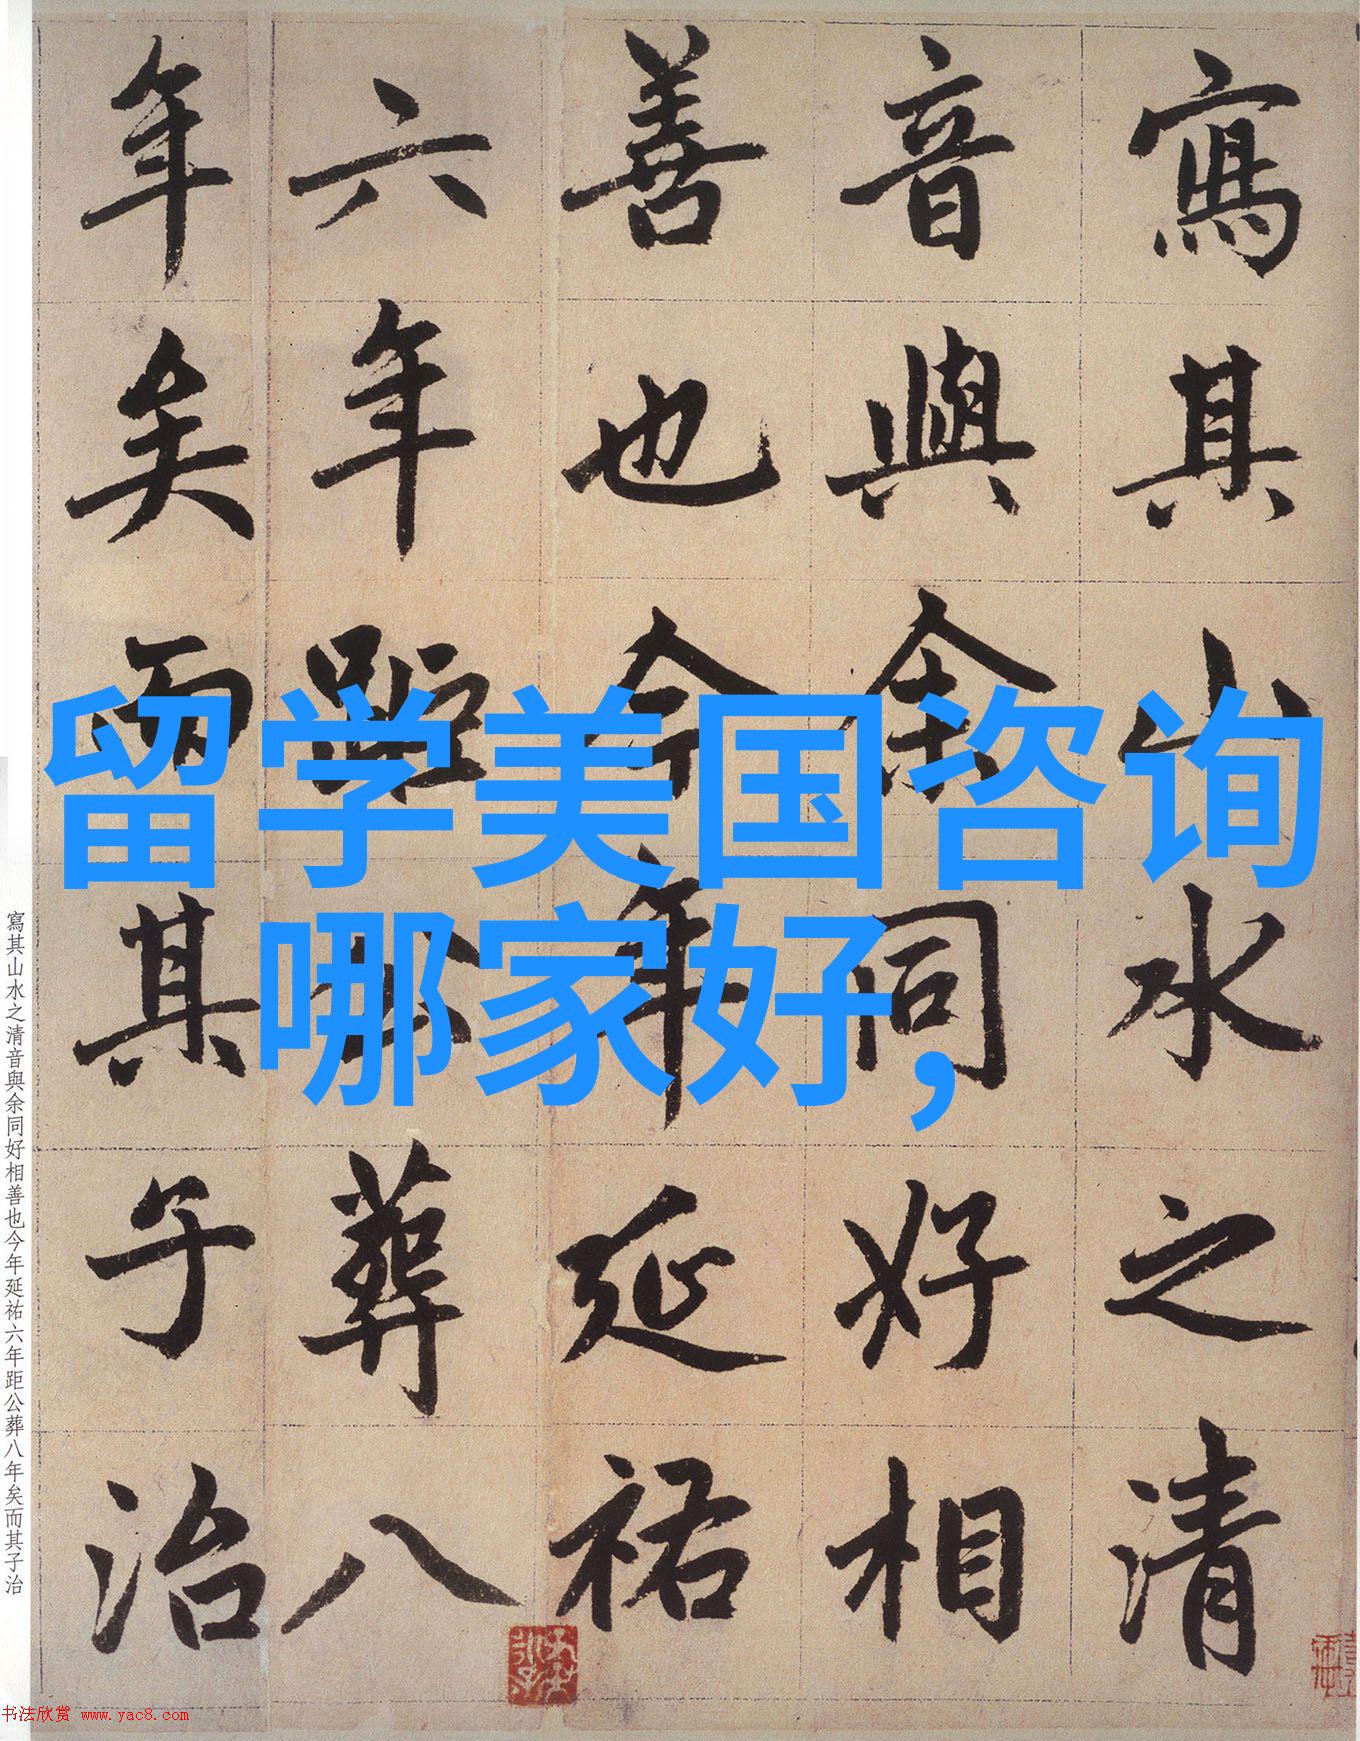 寫其山水之清
音與余同好相
善也今年延祐
六年距公葬八
年矣而其子治
留学美国咨询
哪家好,
寫其山水之清音與余同好相善也今年延祐六年距公葬八年矣而其子治
书法欣赏 www.yac8.com